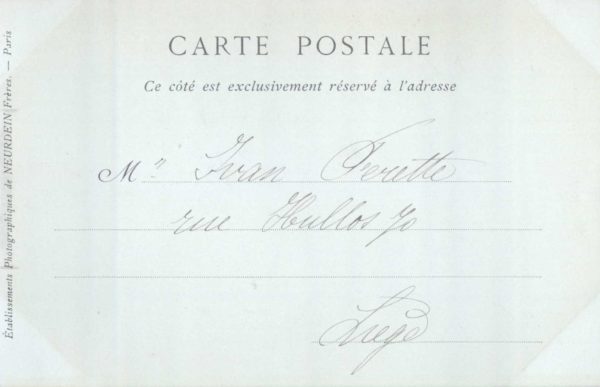 CARTE POSTALE
Ce côté est exclusivement réservé à l'adresse
Mr Ivan Ferette
rue Hullos 70
Liège
Établissements Photographiques de NEURDEIN Frères. — Paris